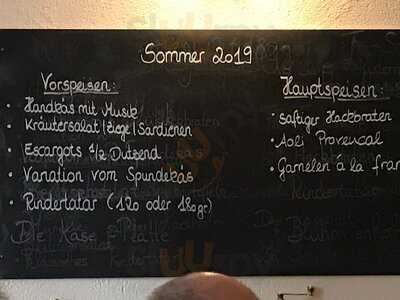 Sommer 2019
Vorspeisen:
• Handkäs mit Musik
• Kräutersalat/Ziege/Sardienen
• Escargots 1/2 Dutzend
• Variation vom Spundekäs
• Rindertatar (120 oder 180gr)
Die Käse-Platte
Hauptspeisen:
• saftiger Hackbraten
• Aoli Provencal
• Garnelen à la fran